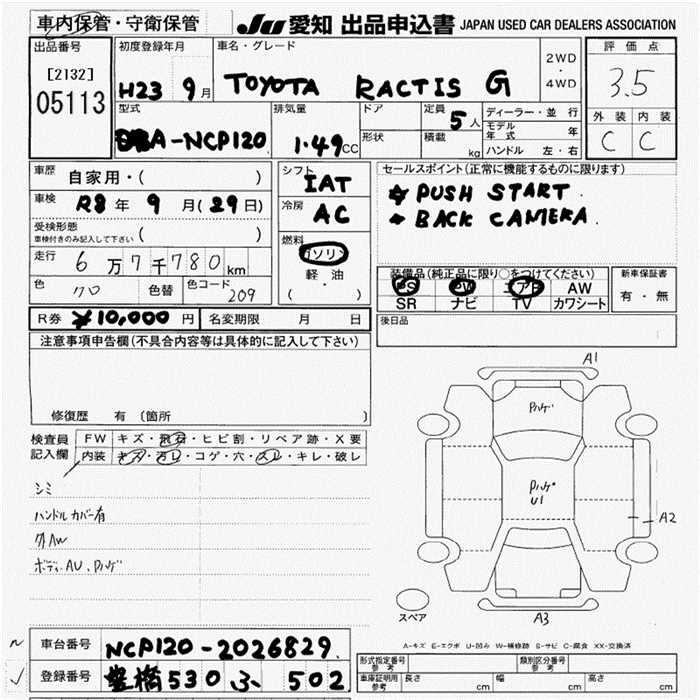 車内保管・守衛保管
JU 愛知 出品申込書 JAPAN USED CAR DEALERS ASSOCIATION
出品番号
[2132]
05113
初度登録年月
H23 9月
車名・グレード
TOYOTA RACTIS G
2WD
・
4WD
評価点
3.5
外装 内装
C C
型式
DBA-NCP120
排気量
1.49CC
ドア
形状
定員 5人
積載 kg
ディーラー・並行
モデル年式 年
ハンドル 左・右
車歴 自家用・( )
車検 R8年 9月(29日)
受検形態
車検付きのみ記入して下さい ( )
走行 6万7千780km
色 クロ 色替 色コード 209
シフト
IAT
冷房
AC
燃料
ガソリン
軽油
( ・ )
セールスポイント(正常に機能するものに限ります)
☆ PUSH START.
BACK CAMERA.
装備品(純正品に限り○をつけてください)
PS PW エアB AW
SR ナビ TV カワシート
新車保証書
有・無
後日品
R券 ¥10,000円 名変期限 月 日
注意事項申告欄(不具合内容等は具体的に記入して下さい)
修復歴 有 (箇所 )
検査員記入欄
FW キズ・飛石・ヒビ割・リペア跡・X要
内装 キズ・汚レ・コゲ・穴・スレ・キレ・破レ
シミ
ハンドルカバー有
外AW
ボディAU、Pハゲ
A1
Pハゲ
Pハゲ
U1
A2
A3
スペア
A-キズ E-エクボ U-凹み W-補修跡 S-サビ C-腐食 XX-交換済
車台番号 NCP120-2026829.
登録番号 豊橋 530 ふ 502
形式指定番号
参考
類別区分番号
参考
車庫証明用
参考
長さ cm 幅 cm 高さ cm